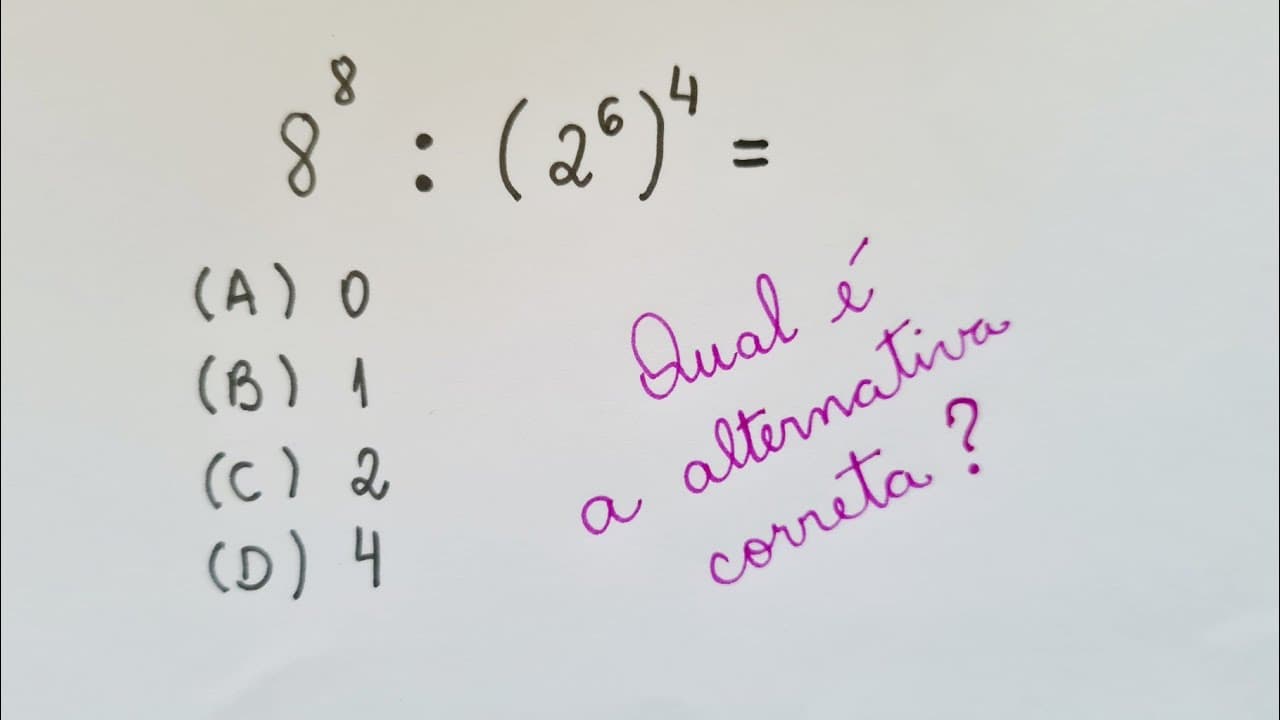 8⁸ : (2⁶)⁴ =
(A) 0
(B) 1
(C) 2
(D) 4
Qual é
a alternativa
correta?